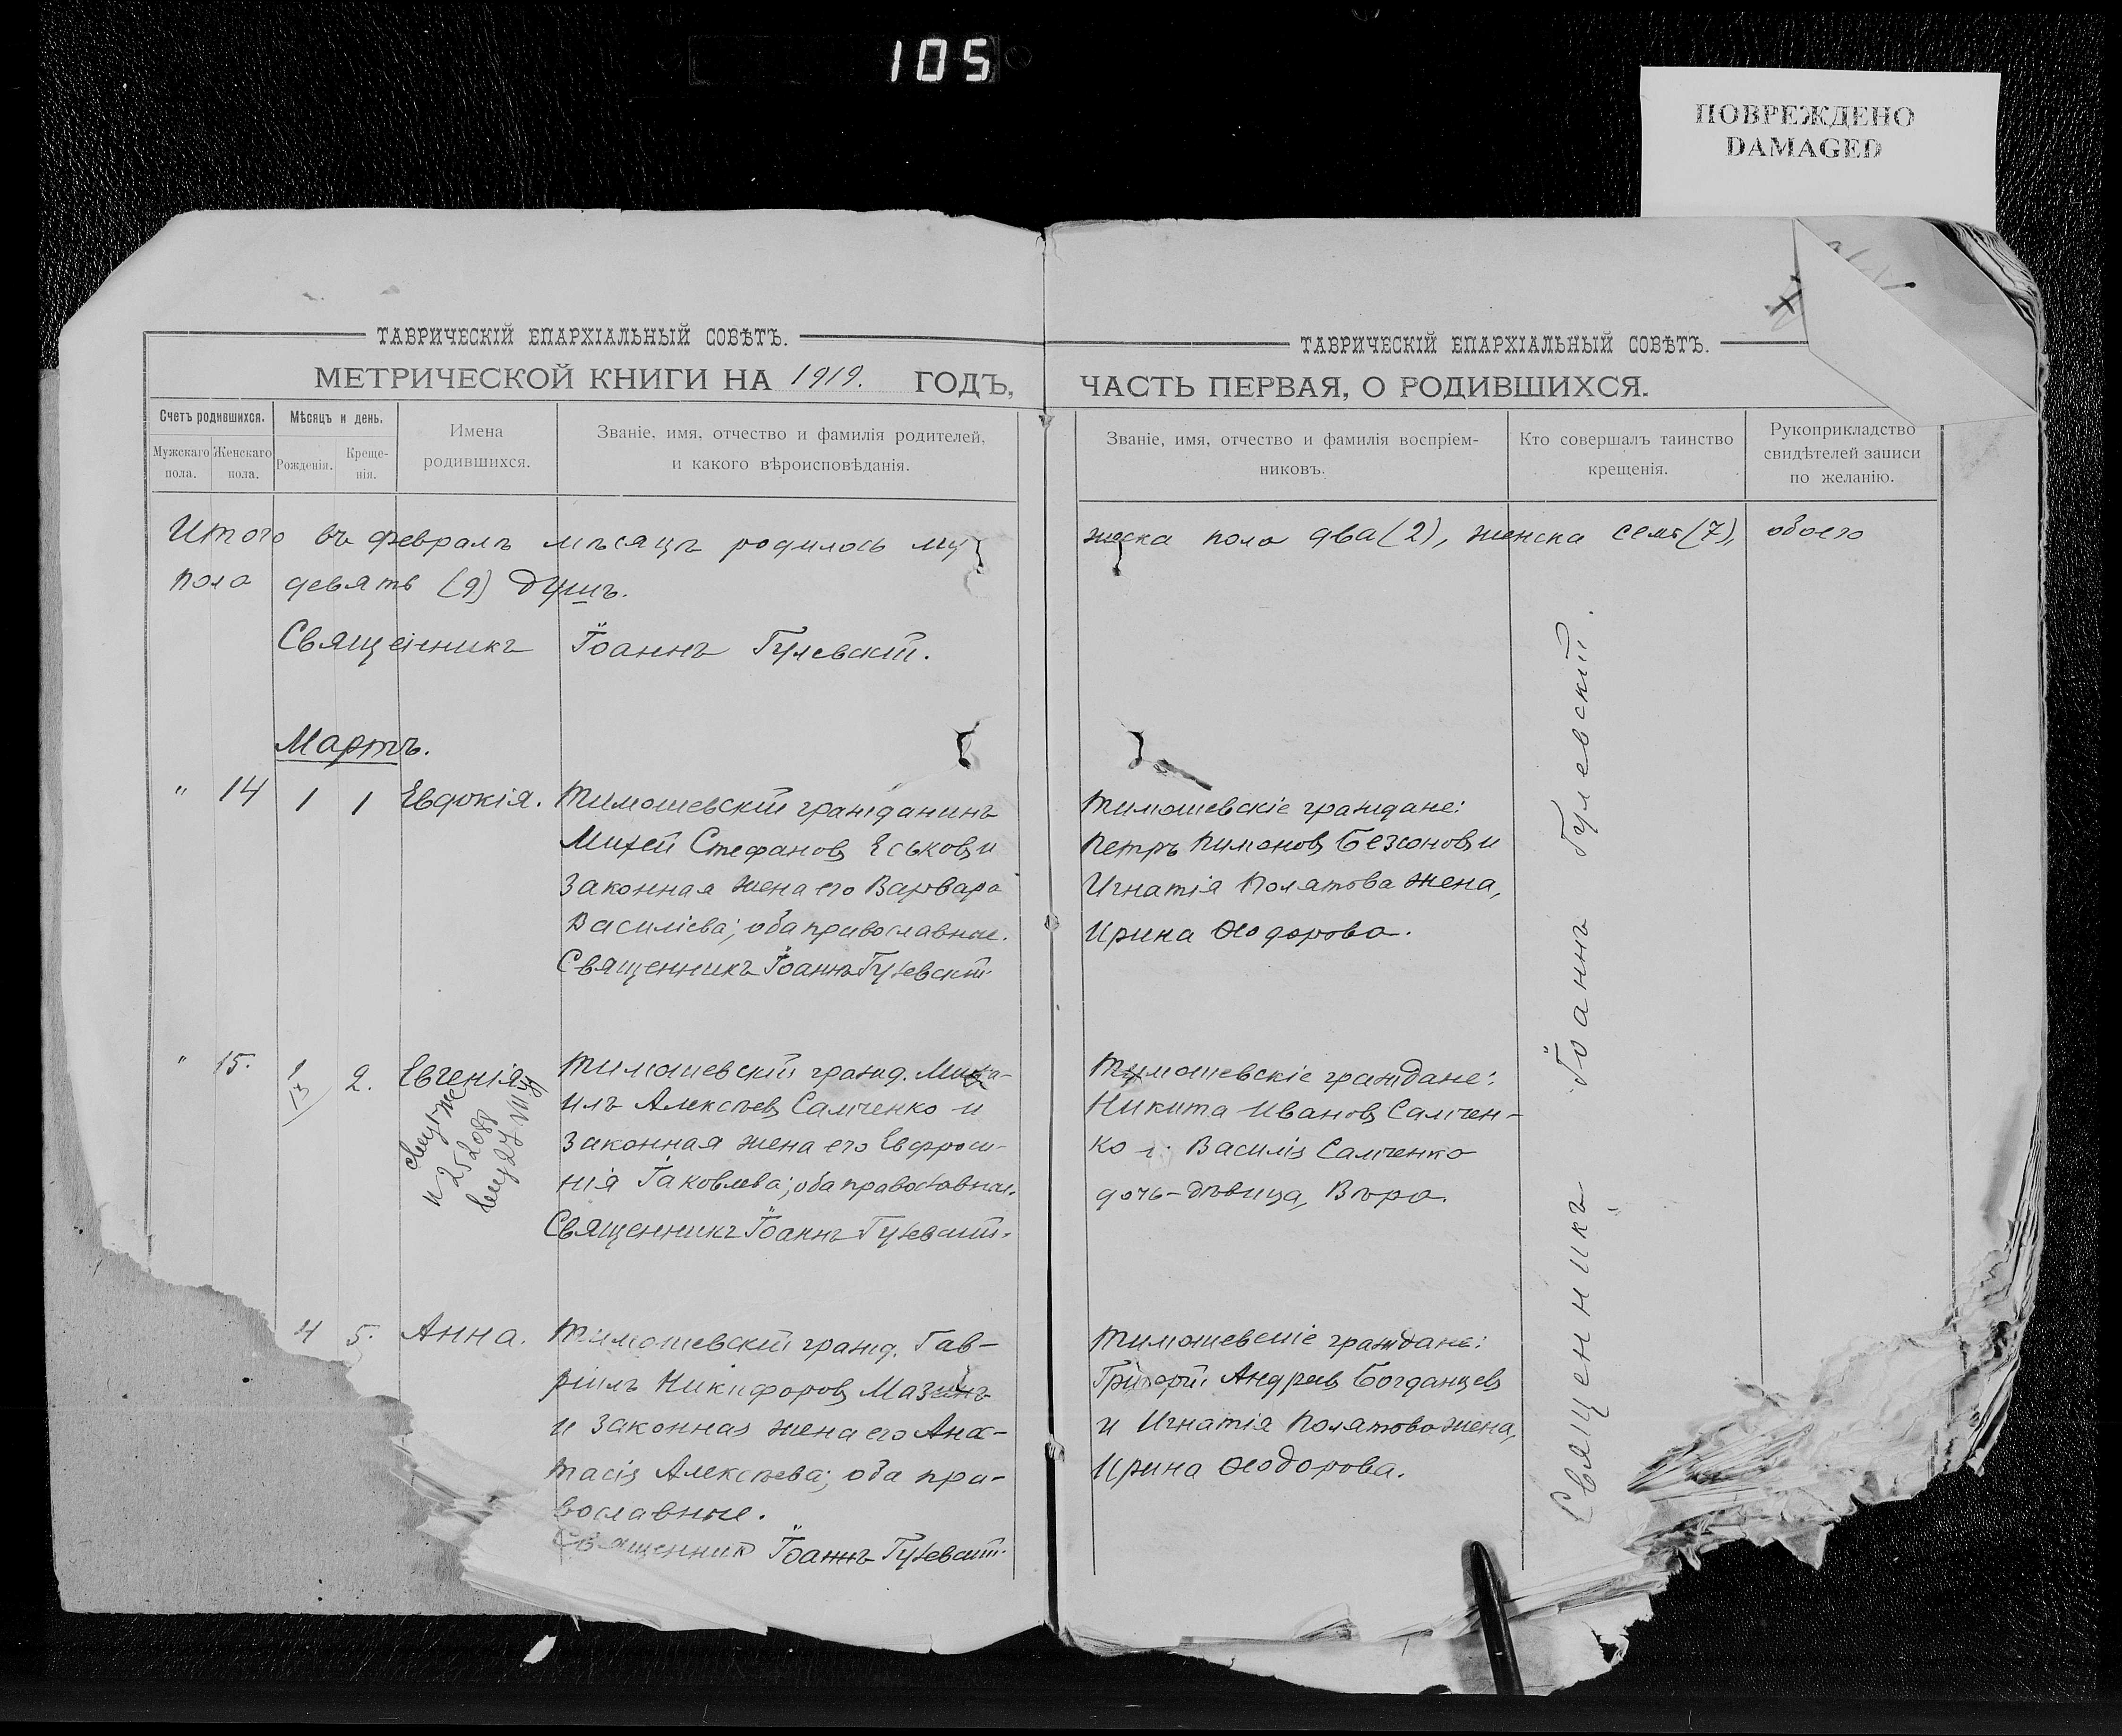 105
ПОВРЕЖДЕНО
DAMAGED
ТАВРИЧЕСКІЙ ЕПАРХІАЛЬНЫЙ СОВѢТЪ.
МЕТРИЧЕСКОЙ КНИГИ НА 1919. ГОДЪ,
Счетъ родившихся.
Мужскаго пола.
Женскаго пола.
Мѣсяцъ и день.
Рожденія.
Креще-
нія.
Имена
родившихся.
Званіе, имя, отчество и фамилія родителей,
и какого вѣроисповѣданія.
Итого въ февралѣ мѣсяцѣ родилось му
пола девять (9) душъ.
Священникъ Іоаннъ Гулевскій.
Мартъ.
" 14 1 1 Евдокія. Тимошевскій гражданинъ
Михей Стефановъ Еськовъ и
законная жена его Варвара
Василіева; оба православные.
Священникъ Іоаннъ Гулевскій.
" 15. 1 2. Евгенія Тимошевскій гражд. Миха-
илъ Алексѣевъ Самченко и
законная жена его Евфроси-
нія Іаковлева; оба православные.
Священникъ Іоаннъ Гулевскій.
4 5. Анна. Тимошевскій гражд. Гав-
ріилъ Никифоровъ Мазинъ
и законная жена его Ана-
тасія Алексѣева; оба пра-
вославные.
Священник Іоаннъ Гулевскій.
ТАВРИЧЕСКІЙ ЕПАРХІАЛЬНЫЙ СОВѢТЪ.
ЧАСТЬ ПЕРВАЯ, О РОДИВШИХСЯ.
Званіе, имя, отчество и фамилія воспріем-
никовъ.
Кто совершалъ таинство
крещенія.
Рукоприкладство
свидѣтелей записи
по желанію.
жеска пола два (2), женска семь (7), обоего
Тимошевскіе граждане:
Петръ Пимоновъ Безсоновъ и
Игнатія Полятова жена,
Ирина Ѳеодорова.
Тимошевскіе граждане:
Никита Ивановъ Самчен-
ко и Василія Самченко
дочь-дѣвица, Вѣра.
Тимошевскіе граждане:
Григорій Андреевъ Богданцевъ
и Игнатія Полятова жена,
Ирина Ѳеодорова.
Священникъ Іоаннъ Гулевскій.